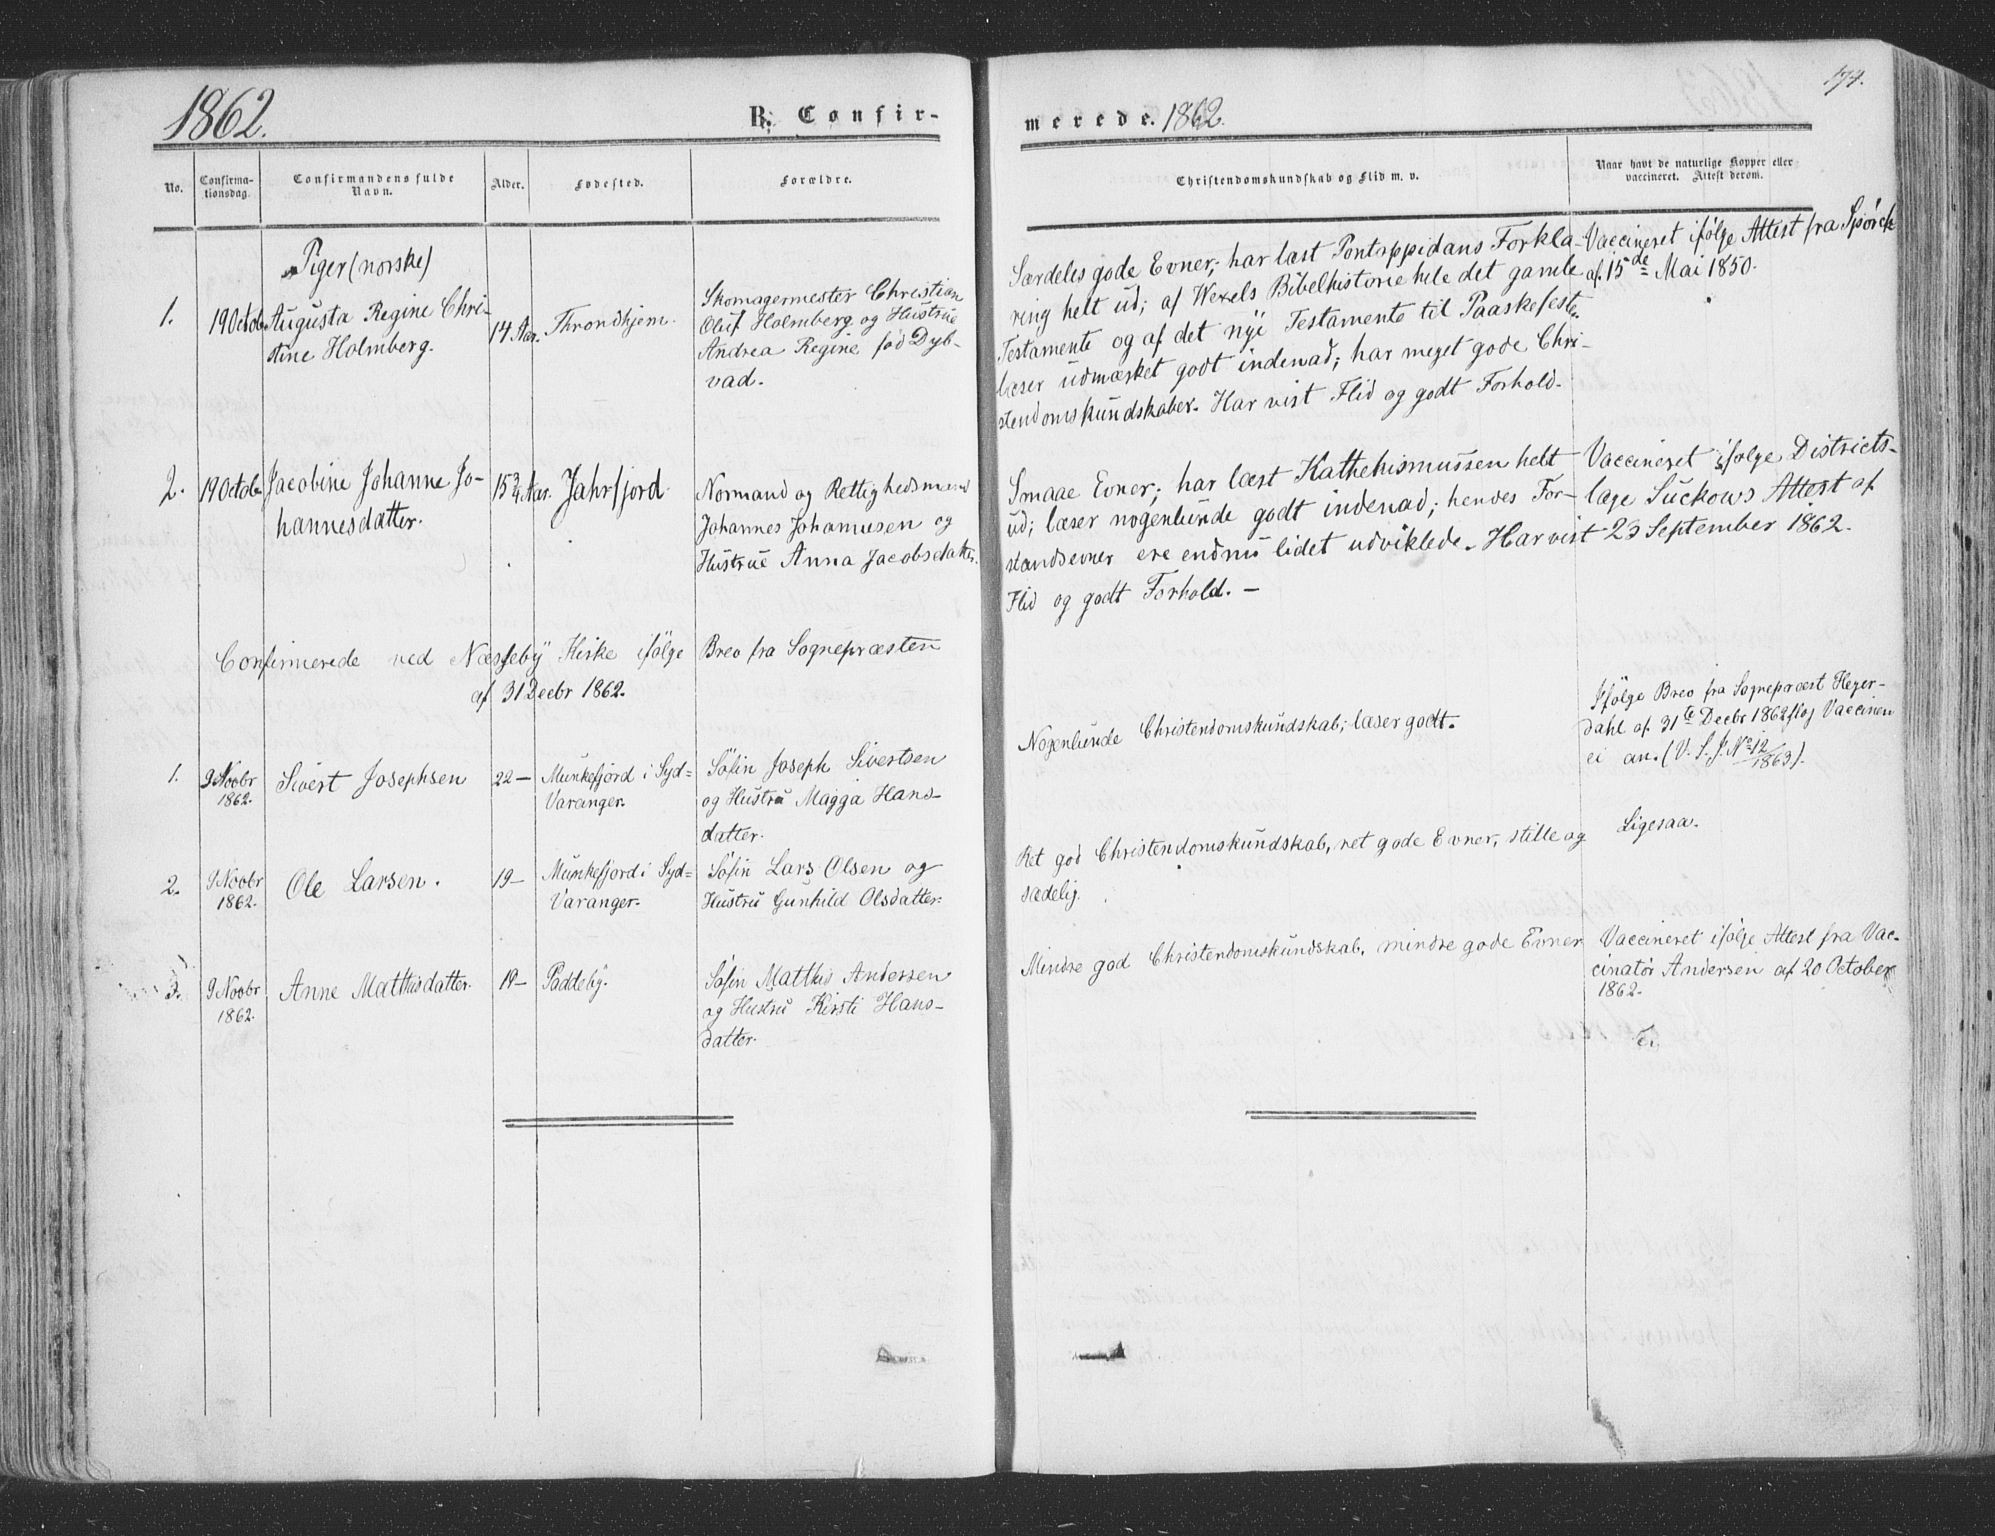 1862.
B. Confir-
No.
Confirma-
tionsdag.
Confirmandens fulde
Navn.
Alder.
Fødested.
Forældre.
Piger (norske)
1.
19 Octob.
Augusta Regine Chri-
stine Holmberg.
14 Aar.
Throndhjem.
Skomagermester Christian
Oluf Holmberg og Hustrue
Andrea Regine fød Dyb-
vad.
2.
19 Octob.
Jacobine Johanne Jo-
hannesdatter.
15 3/4 Aar.
Jahrfjord.
Normand og Rettighedsmand
Johannes Johannesen og
Hustrue Anna Jacobsdatter.
Confirmerede ved Næsseby Kirke ifölge Brev fra Sognepræsten
af 31 Decbr 1862.
1.
9 Novbr
1862.
Sivert Josephsen
22 —
Munkefjord i Syd-
Varanger.
Söfin Joseph Sivertsen
og Hustru Magga Hans-
datter.
2.
9 Novbr
1862.
Ole Larsen.
19 —
Munkefjord i Syd=
Varanger.
Söfin Lars Olsen og
Hustru Gunhild Olsdatter.
3.
9 Novbr
1862.
Anne Mathisdatter.
19 —
Paddeby.
Söfin Mathis Andersen
og Hustru Kirsti Hans-
datter.
174.
merede. 1862.
Christendomskundskab og Flid m. v.
Naar havt de naturlige Kopper eller
vaccineret. Attest derom.
Særdeles gode Evner; har læst Pontoppidans Forkla-
ring helt ud; af Wexels Bibelhistorie hele det gamle
Testamente og af det nye Testamente til Paaskefesten.
læser udmærket godt indenad; har meget gode Chri-
stendomskundskaber. Har vist Flid og godt Forhold.
Vaccineret ifølge Attest fra Spörck
af 15de Mai 1850.
Smaae Evner; har læst Kathekismussen helt
ud; læser nogenlunde godt indenad; hendes For-
standsevner ere endnu lidet udviklede. Har vist
Flid og godt Forhold. —
Vaccineret ifølge Districts-
læge Suckows Attest af
23 September 1862.
Nogenlunde Christendomskundskab; læser godt.
Ifölge Brev fra Sognepræst Heyer-
dahl af 31te Decbr 1862 slog Vaccinen
ei an. (V. S. J. No 12/1863).
Ret god Christendomskundskab, ret gode Evner, stille og
sædelig.
Ligesaa.
Mindre god Christendomskundskab, mindre gode Evner
Vaccineret ifølge Attest fra Vac-
cinatör Andersen af 20 October
1862.